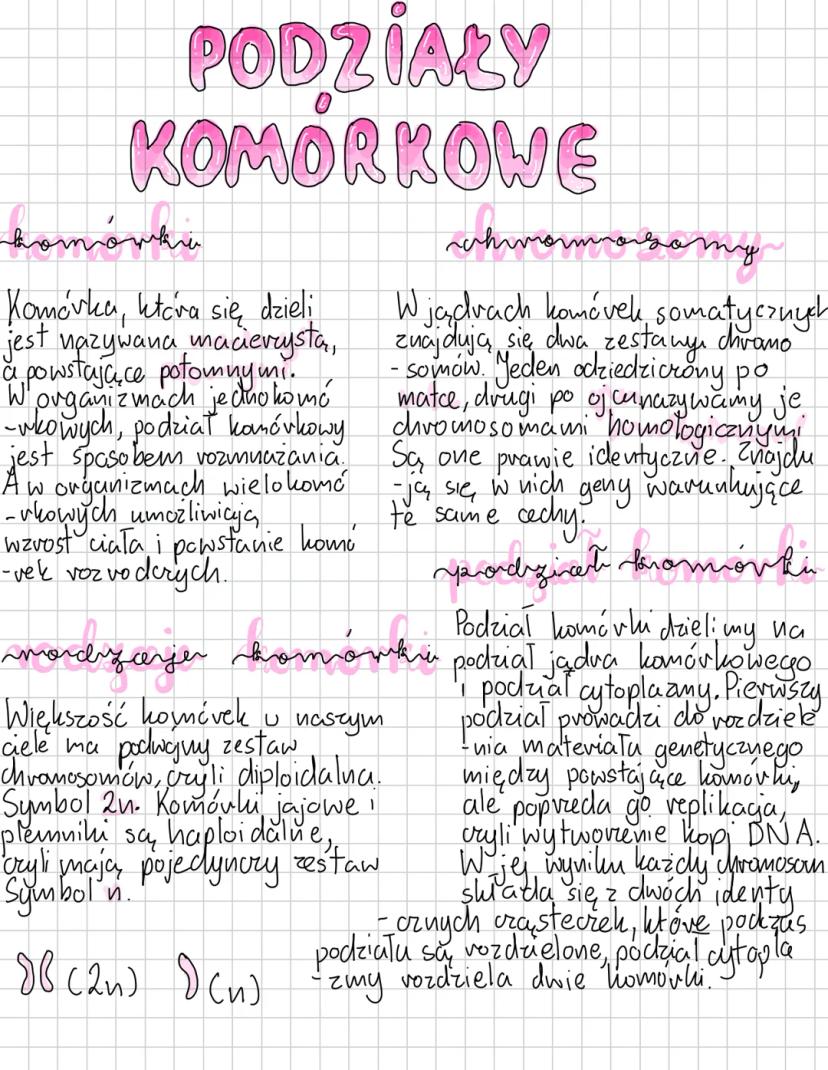 PODZIAŁY
KOMÓRKOWE
komórki
Komórka, która się dzieli
jest nazywana macierzystą,
a powstające potomnymi.
W organizmach jednokomó
-rkowych, podział komórkowy
jest sposobem rozmnażania.
A w organizmach wielokomó
-rkowych umożliwiają
wzrost ciała i powstanie komó
-rek rozrodczych.
rodzaje komórki
Większość komórek u naszym
ciele ma podwójny zestaw
chromosomów, czyli diploidalna.
Symbol 2n. Komórki jajowe i
plemniki są haploidalne,
czyli mają pojedynczy zestaw
Symbol n.
(2n) (n)
chromosomy
W jądrach komórek somatycznych
znajdują się dwa zestawy chromo
-somów. Jeden odziedziczony po
matce, drugi po ojcu nazywamy je
chromosomami homologicznymi
Są one prawie identyczne. Znajdu
-ją się w nich geny warunkujące
te same cechy.
podział komórki
Podział komórki dzielimy na
podział jądra komórkowego
i podział cytoplazmy. Pierwszy
podział prowadzi do rozdziele
-nia materiału genetycznego
między powstające komórki,
ale poprzeda go replikacja,
czyli wytworzenie kopi DNA.
W jej wyniku każdy chromosom
składa się z dwóch identy
-cznych cząsteczek, które podczas
podziału są rozdzielone, podział cytopla
-zmy rozdziela dwie komórki.